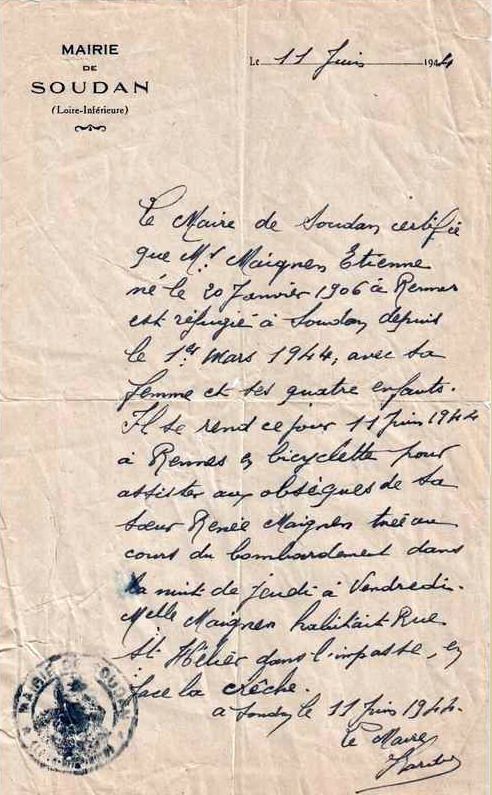 MAIRIE
DE
SOUDAN
(Loire-Inférieure)
Le 11 Juin 1944
Le Maire de Soudan certifie
que Mr Maignen Etienne
né le 20 Janvier 1906 à Rennes
est réfugié à Soudan depuis
le 1er Mars 1944, avec sa
femme et ses quatre enfants.
Il se rend ce jour 11 Juin 1944
à Rennes en bicyclette pour
assister aux obsèques de sa
sœur Renée Maignen tuée au
cours du bombardement dans
la nuit de Jeudi à Vendredi.
Melle Maignen habitait Rue
St Hélier dans l'impasse, en
face la crêche.
à Soudan le 11 Juin 1944.
Le Maire
MAIRIE DE SOUDAN